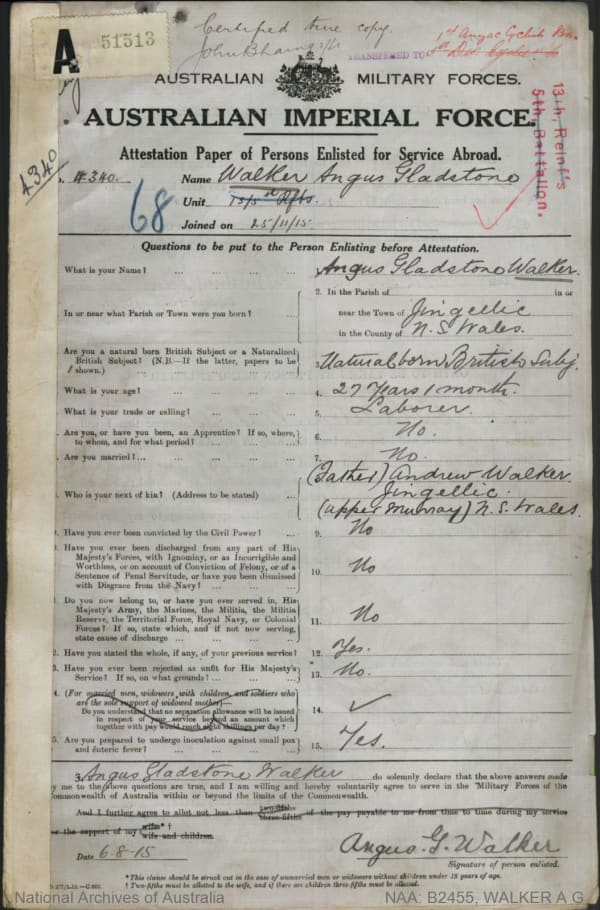 A 51513
Certified true copy
TRANSFERRED TO
1st Anzac Cyclist Bn.
AUSTRALIAN MILITARY FORCES.
AUSTRALIAN IMPERIAL FORCE.
13th, Reinf's
5th, Battalion.
Attestation Paper of Persons Enlisted for Service Abroad.
4340
4340. Name Walker Angus Gladstone
68
Unit 13/5th Rfts.
Joined on 25/11/15
Questions to be put to the Person Enlisting before Attestation.
What is your Name? ... ... ... Angus Gladstone Walker.
In or near what Parish or Town were you born? ...
2. In the Parish of in or
near the Town of Jingellic
in the County of N.S. Wales.
Are you a natural born British Subject or a Naturalized
British Subject? (N.B.—If the latter, papers to be
shown.) ... ... ... 3. Natural born British Subj.
What is your age? ... ... ... 4. 27 Years 1 month.
What is your trade or calling? ... ... ... 5. Laborer.
Are you, or have you been, an Apprentice? If so, where,
to whom, and for what period? ... ... 6. No.
Are you married?... ... ... 7. No.
Who is your next of kin? (Address to be stated) ...
(Father) Andrew Walker.
Jingellic.
(Upper Murray) N.S. Wales.
Have you ever been convicted by the Civil Power? ... 9. No
Have you ever been discharged from any part of His
Majesty's Forces, with Ignominy, or as Incorrigible and
Worthless, or on account of Conviction of Felony, or of a
Sentence of Penal Servitude, or have you been dismissed
with Disgrace from the Navy? ... ... 10. No
Do you now belong to, or have you ever served in, His
Majesty's Army, the Marines, the Militia, the Militia
Reserve, the Territorial Force, Royal Navy, or Colonial
Forces? If so, state which, and if not now serving,
state cause of discharge ... ... ... 11. No
2. Have you stated the whole, if any, of your previous service? 12. Yes.
3. Have you ever been rejected as unfit for His Majesty's
Service? If so, on what grounds? ... ... 13. No.
4. (For married men, widowers with children, and soldiers who
are the sole support of widowed mother)—
Do you understand that no separation allowance will be issued
in respect of your service beyond an amount which
together with pay would reach eight shillings per day? 14. ✓
5. Are you prepared to undergo inoculation against small pox
and enteric fever? ... ... ... 15. Yes.
Angus Gladstone Walker do solemnly declare that the above answers made
by me to the above questions are true, and I am willing and hereby voluntarily agree to serve in the Military Forces of the
Commonwealth of Australia within or beyond the limits of the Commonwealth.
And I further agree to allot not less than two-fifths three-fifths of the pay payable to me from time to time during my service
for the support of my wife* † wife and children.
Date 6-8-15 Angus. G. Walker
Signature of person enlisted.
* This clause should be struck out in the case of unmarried men or widowers without children under 18 years of age.
† Two-fifths must be allotted to the wife, and if there are children three-fifths must be allotted.
National Archives of Australia NAA: B2455, WALKER A G